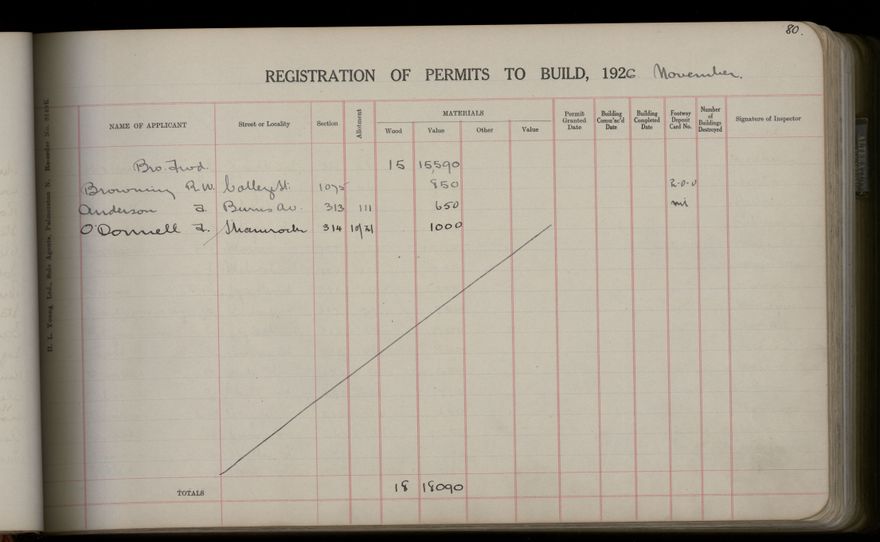 80.
REGISTRATION OF PERMITS TO BUILD, 1926 November.
NAME OF APPLICANT Street or Locality Section Allotment MATERIALS Permit Granted Date Building Comm'nc'd Date Building Completed Date Footway Deposit Card No. Number of Buildings Destroyed Signature of Inspector
Wood Value Other Value
Bro. Fwd. 15 15,590
Browning R.W. College St. 1075 850 2-0-0
Anderson J. Burns Av. 313 111 650 nil
O'Donnell J. Shamrock 314 1000
TOTALS 18 18090
H. L. Young, Ltd., Sole Agents, Palmerston N. Re-order No.